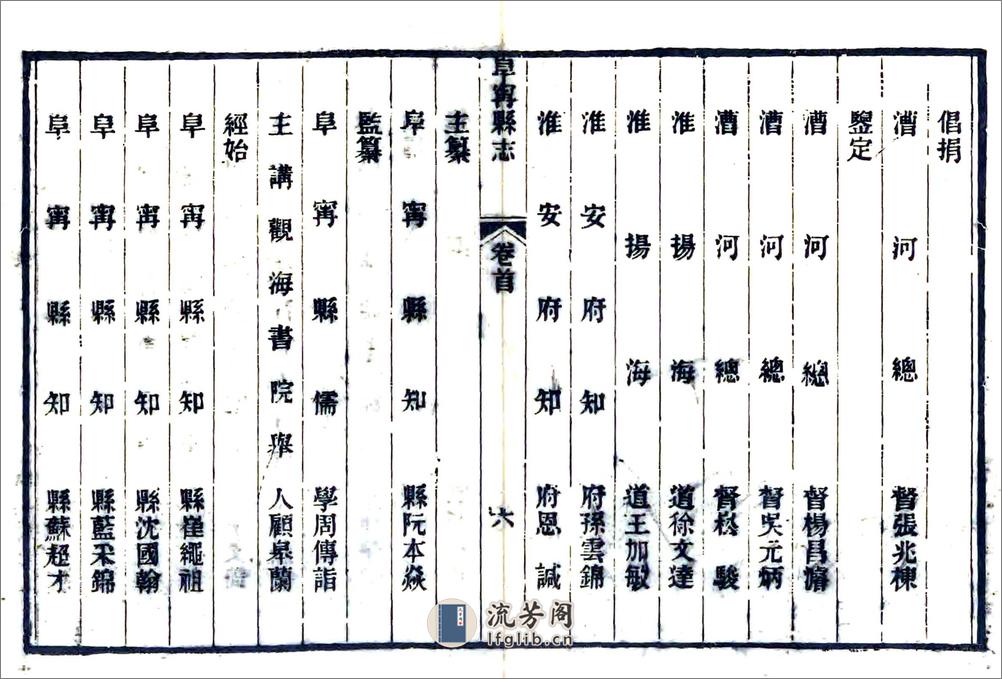 倡捐
漕河總督張兆棟
鑒定
漕河總督楊昌濬
漕河總督吳元炳
漕河總督崧駿
淮揚海道徐文達
淮揚海道王加敏
淮安府知府孫雲錦
淮安府知府恩誠
阜甯縣志
卷首
六
主纂
阜甯縣知縣阮本焱
監纂
阜甯縣儒學周傳詣
主講觀海書院舉人顧皋蘭
經始
阜甯縣知縣崔繩祖
阜甯縣知縣沈國翰
阜甯縣知縣藍采錦
阜甯縣知縣蘇超才
流芳阁
lfglib.cn